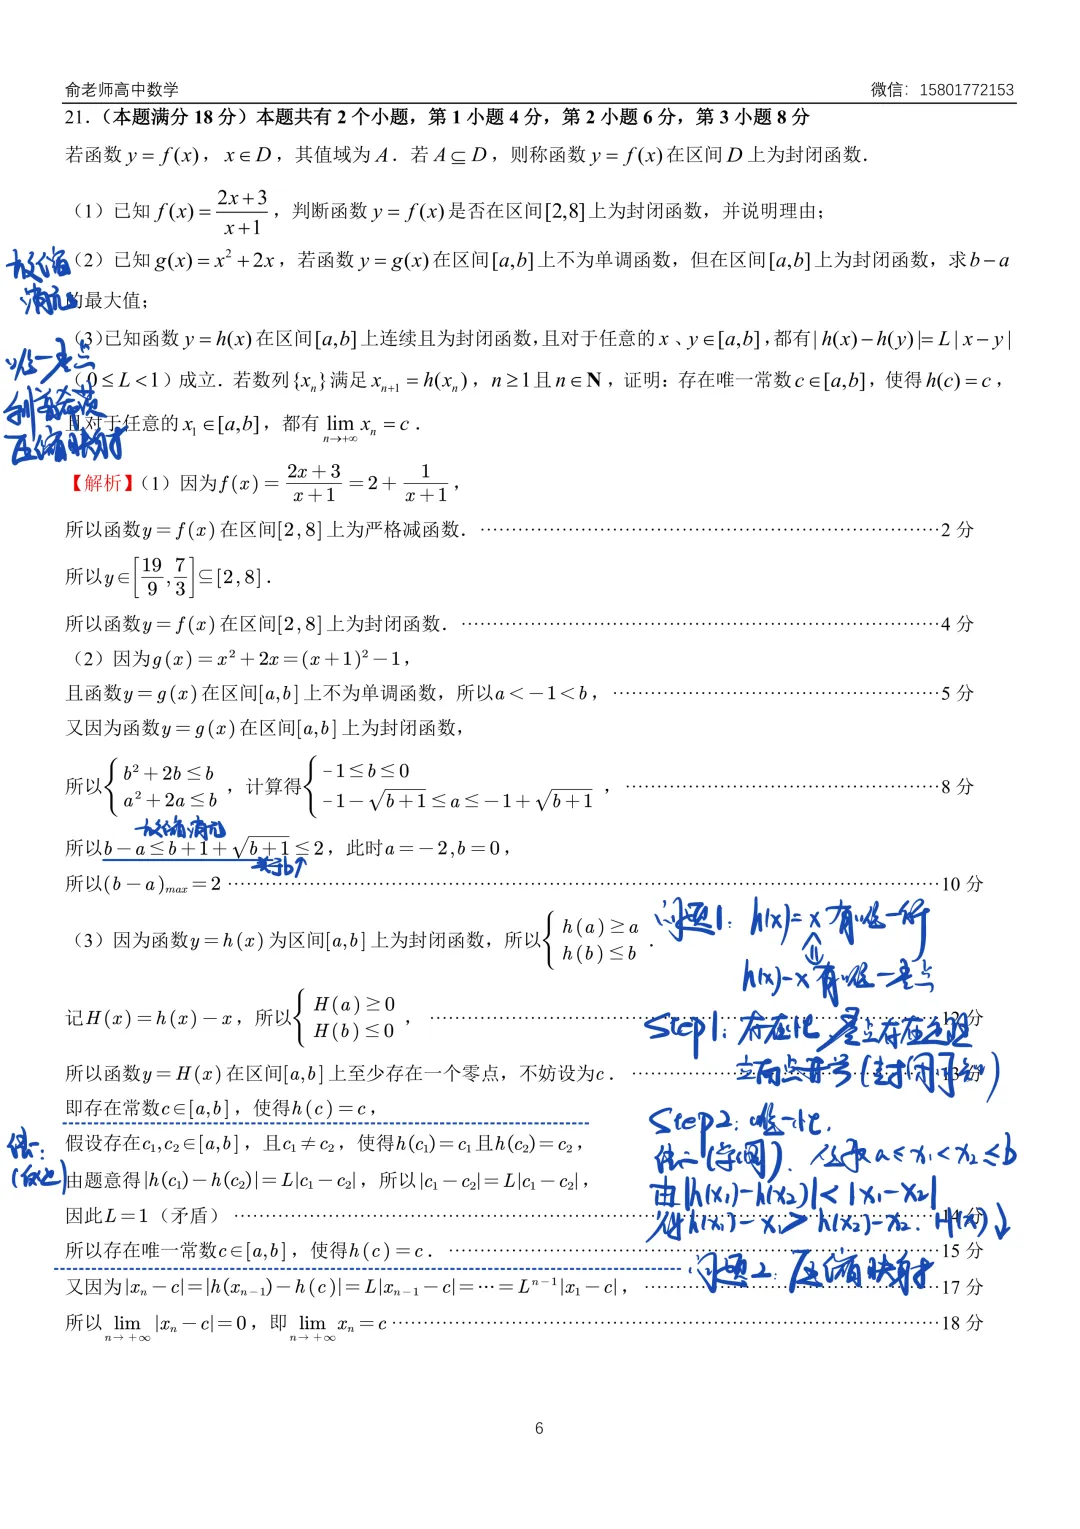 俞老师高中数学 微信：15801772153
21.（本题满分 18 分）本题共有 2 个小题，第 1 小题 4 分，第 2 小题 6 分，第 3 小题 8 分
若函数 y = f(x)，x∈D，其值域为 A．若 A⊆D，则称函数 y = f(x) 在区间 D 上为封闭函数．
（1）已知 f(x) = (2x+3)/(x+1)，判断函数 y = f(x) 是否在区间[2,8]上为封闭函数，并说明理由；
放缩
（2）已知 g(x) = x² + 2x，若函数 y = g(x) 在区间[a,b]上不为单调函数，但在区间[a,b]上为封闭函数，求 b − a
消元
的最大值；
（3）已知函数 y = h(x) 在区间[a,b]上连续且为封闭函数，且对于任意的 x、y∈[a,b]，都有| h(x) − h(y) |= L | x − y |
唯一零点
（0 ≤ L < 1）成立．若数列{xₙ}满足 xₙ₊₁ = h(xₙ)，n ≥ 1 且 n∈N，证明：存在唯一常数 c∈[a,b]，使得 h(c) = c，
且对于任意的 x₁∈[a,b]，都有 lim(n→+∞) xₙ = c．
压缩映射
【解析】（1）因为 f(x) = (2x+3)/(x+1) = 2 + 1/(x+1)，
所以函数 y = f(x) 在区间[2,8]上为严格减函数．……2 分
所以 y∈[19/9, 7/3]⊆[2,8]．
所以函数 y = f(x) 在区间[2,8]上为封闭函数．……4 分
（2）因为 g(x) = x² + 2x = (x+1)² − 1，
且函数 y = g(x) 在区间[a,b]上不为单调函数，所以 a < −1 < b，……5 分
又因为函数 y = g(x) 在区间[a,b]上为封闭函数，
所以 { b² + 2b ≤ b ; a² + 2a ≤ b ，计算得 { −1 ≤ b ≤ 0 ; −1 − √(b+1) ≤ a ≤ −1 + √(b+1) ，……8 分
放缩消元
所以 b − a ≤ b + 1 + √(b+1) ≤ 2，此时 a = −2, b = 0，
关于b↑
所以 (b − a)max = 2 ……10 分
（3）因为函数 y = h(x) 为区间[a,b]上为封闭函数，所以 { h(a) ≥ a ; h(b) ≤ b ．
问题1：h(x)=x 有唯一解
⇕
h(x)-x 有唯一零点
记 H(x) = h(x) − x，所以 { H(a) ≥ 0 ; H(b) ≤ 0 ，……12 分
Step1：存在性，零点存在定理
所以函数 y = H(x) 在区间[a,b]上至少存在一个零点，不妨设为 c．……13 分
立两点异号（封闭可知）
即存在常数 c∈[a,b]，使得 h(c) = c，
Step2：唯一性.
假设存在 c₁,c₂∈[a,b]，且 c₁ ≠ c₂，使得 h(c₁) = c₁ 且 h(c₂) = c₂，
任取 a≤x₁<x₂≤b
由题意得 |h(c₁) − h(c₂)| = L|c₁ − c₂|，所以 |c₁ − c₂| = L|c₁ − c₂|，
由|h(x₁)-h(x₂)|<|x₁-x₂|
因此 L = 1（矛盾）……14 分
得h(x₁)-x₁>h(x₂)-x₂. H(x)↓
所以存在唯一常数 c∈[a,b]，使得 h(c) = c．……15 分
问题2：压缩映射
又因为 |xₙ − c| = |h(xₙ₋₁) − h(c)| = L|xₙ₋₁ − c| = ⋯ = Lⁿ⁻¹|x₁ − c|，……17 分
所以 lim(n→+∞) |xₙ − c| = 0，即 lim(n→+∞) xₙ = c ……18 分
6